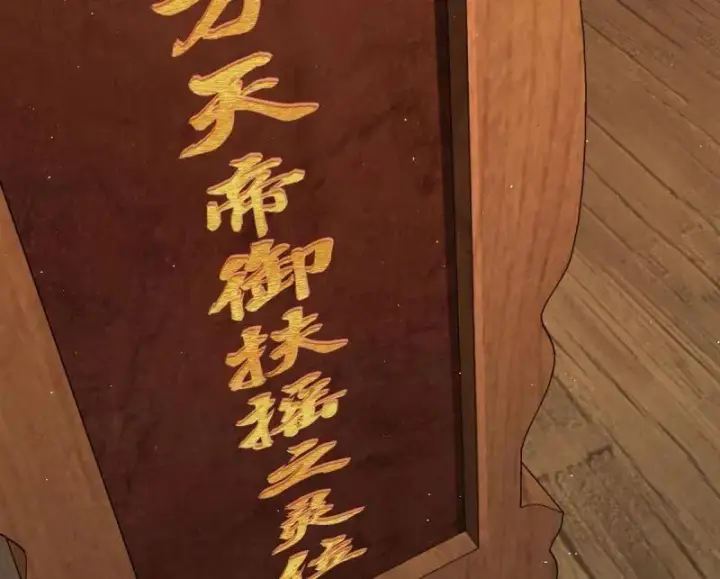 方天帝御扶摇之灵位